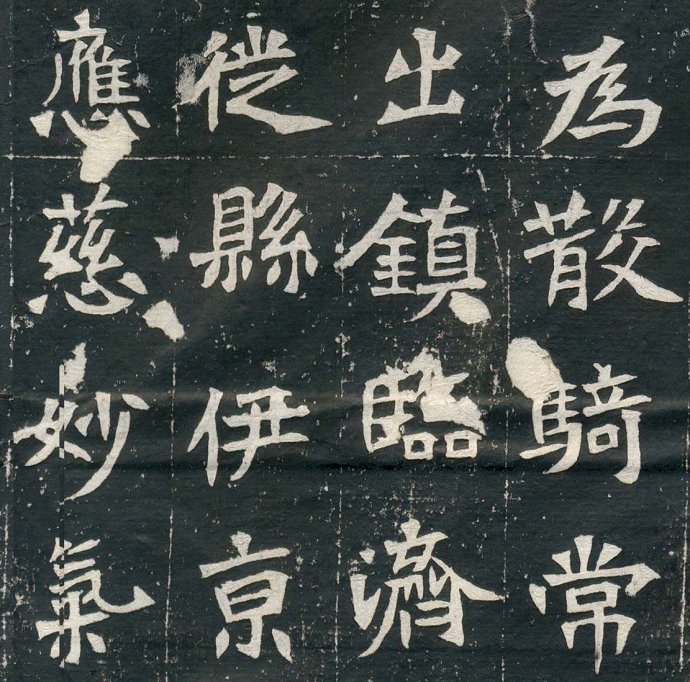 為散騎常
出鎮臨濟
徙縣伊京
應慈妙氣